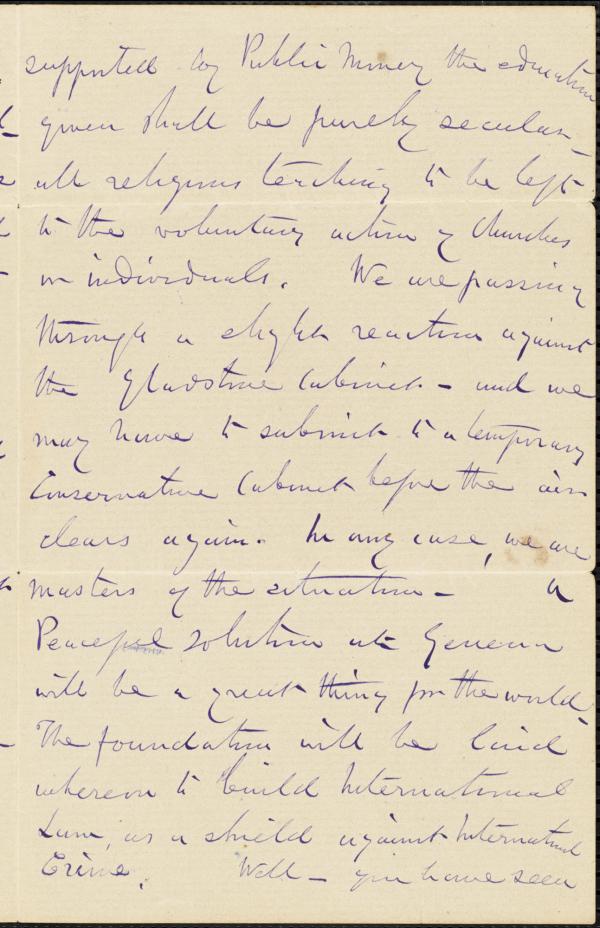 supported by Public Money the education
given shall be purely secular_
all religious teaching to be left
to the voluntary action of Churches
or individuals. We are passing
through a slight reaction against
the Gladstone Cabinet - and we
may have to submit to a temporary
Conservative Cabinet before the air
clears again. In any case, we are
masters of the situation - A
Peaceful solution at Geneva
will be a great thing for the world_
The foundation will be laid
whereon to build International
Law, as a shield against International
Crime. Well - you have seen